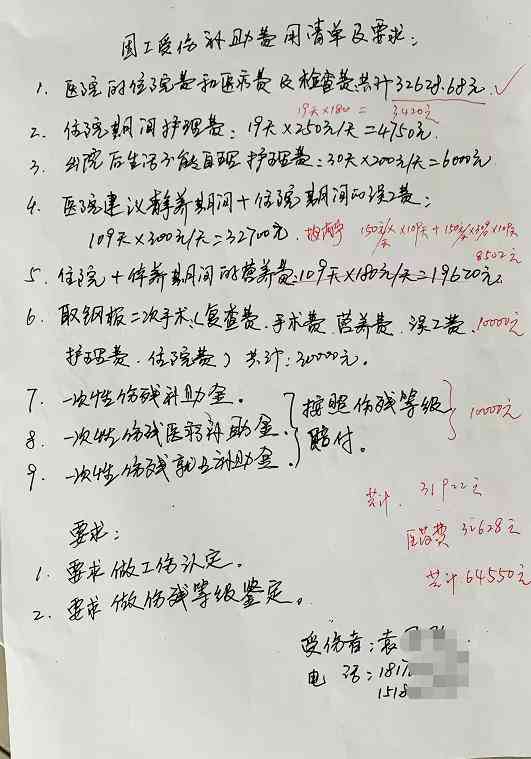 因工受伤补助费用清单及要求:
1. 医院的住院费和医药费及检查费共计32628.68元 ✓
19天×180 = 3420元
2. 住院期间护理费:19天×250元/天=4750元.
3. 出院后生活不能自理护理费:30天×200元/天=6000元
4. 医院建议静养期间+住院期间的误工费:
109天×300元/天=32700元. 150元/天×109天+150元/天
8502元
5. 住院+休养期间的营养费:109天×180元/天=19620元.
6. 取钢板二次手术(复查费.手术费.营养费.误工费. 10000元
护理费.住院费)共计:30000元.
7. 一次性伤残补助金.
8. 一次性伤残医药补助金. 按照伤残等级 10000元
9. 一次性伤残就业补助金. 赔付.
共计. 31922元
医药费 32628元
共计64550元
要求:
1. 要求做工伤认定.
2. 要求做伤残等级鉴定.
受伤者:袁
电 话:1817
1518